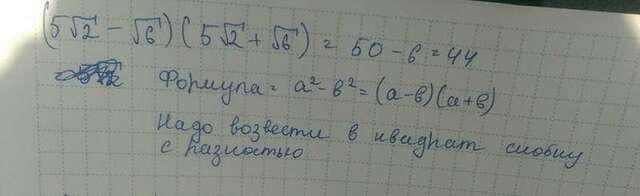 (5√2 - √6)(5√2 + √6) = 50 - 6 = 44
Формула = a² - в² = (a-в)(a+в)
Надо возвести в квадрат скобку
с разностью